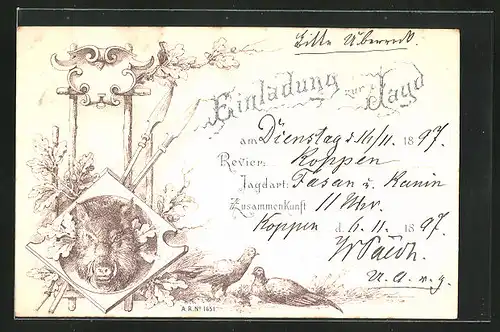 Bitte Überrock.
Einladung zur Jagd
am Dienstag d. 16/11. 1897.
Revier: Koppen
Jagdart: Fasan u. Kanin
Zusammenkunft 11 Uhr.
Koppen d. 6. 11. 1897.
U. A. w. g.
A.R.No 1651